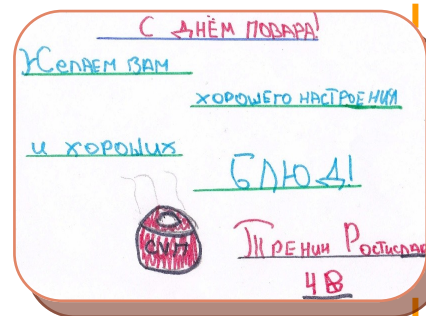 С ДНЁМ ПОВАРА!
ЖЕЛАЕМ ВАМ
ХОРОШЕГО НАСТРОЕНИЯ
И ХОРОШИХ
БЛЮД!
ТРЕНИН РОСТИСЛАВ
4 В